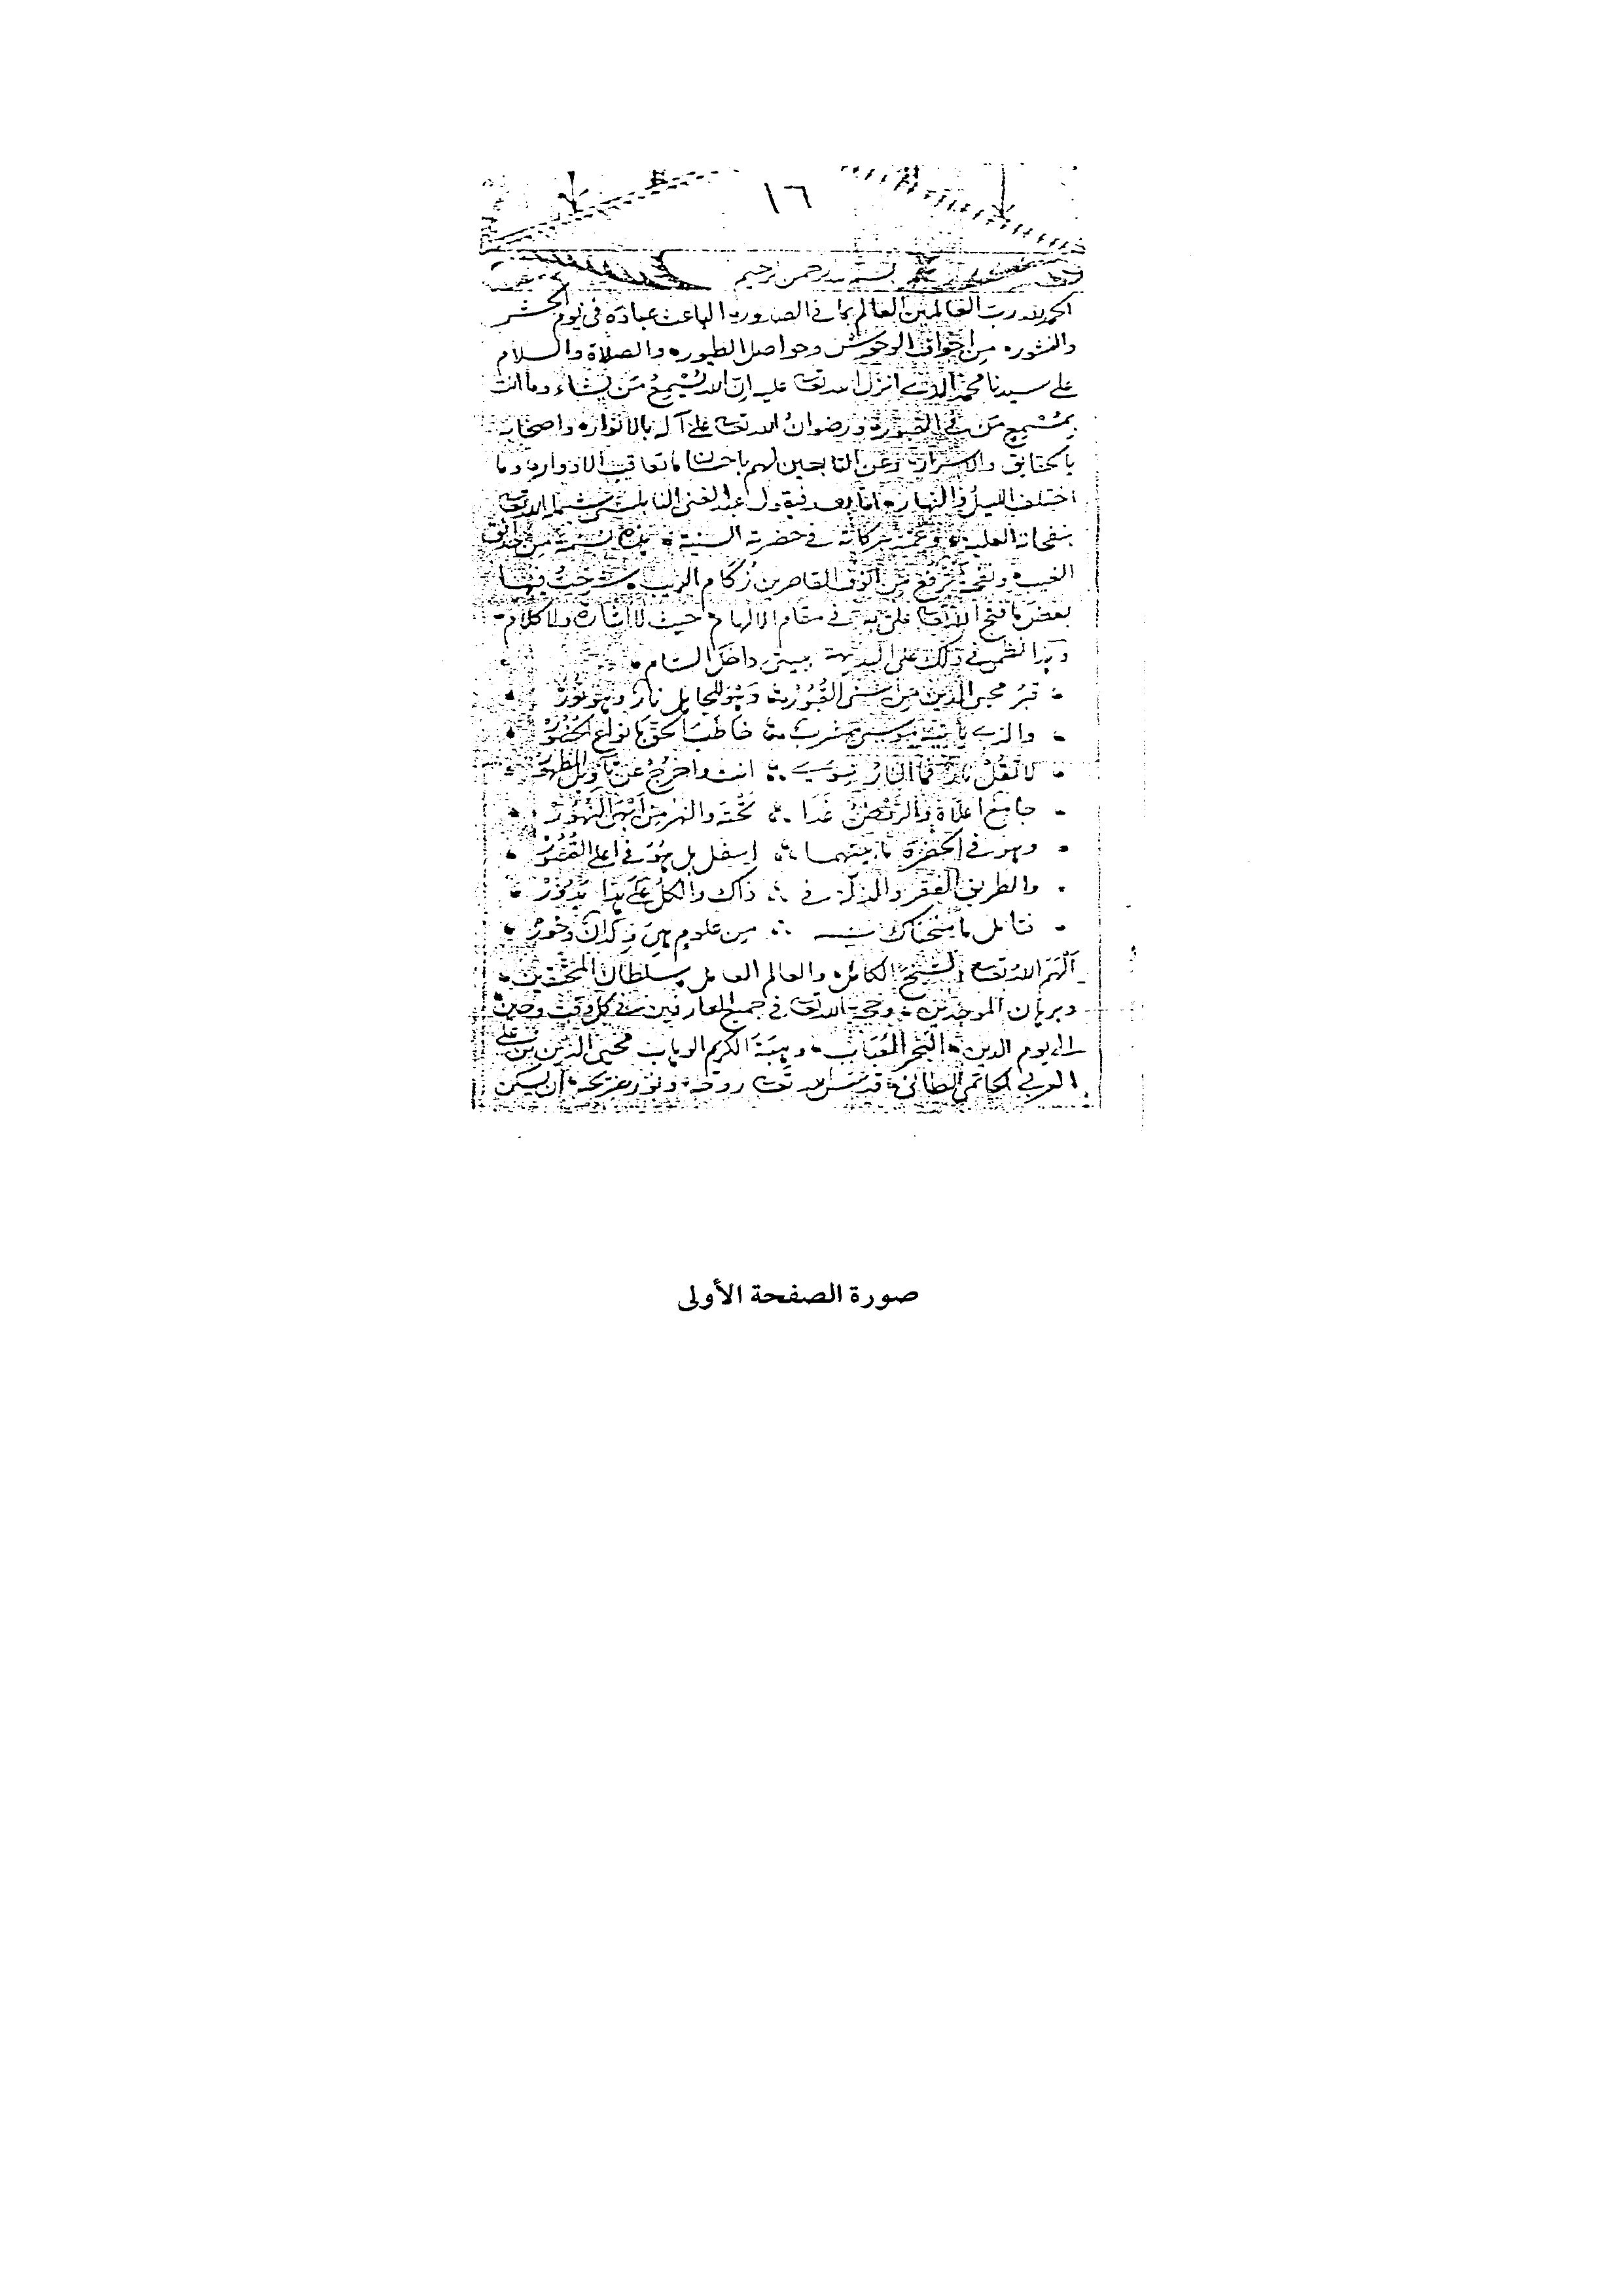 ١٦
بسم الله الرحمن الرحيم
الحمد لله رب العالمين العالم بما في الصدور الباعث عباده في يوم الحشر
والنشور من اجواف الوحوش وحواصل الطيور والصلاة والسلام
على سيدنا محمد الذي انزل الله تعالى عليه ان الله يسمع من يشاء وما انت
بمسمع من في القبور ورضوان الله تعالى على آله بالانوار واصحابه
بالحقايق والاسرار وعن التابعين لهم باحسان ما تعاقب الادوار وما
اختلف الليل والنهار اما بعد فيقول عبد الغني النابلسي شمله الله تعالى
بنفحاته العلية وعمته بركاته في حضرته السنية هذه نسمة من حدائق
الغيب ونفحة ترفع من انوف القاصرين زكام الريب شرحت فيها
بعض ما فتح الله تعالى علي به في مقام الالهام حيث لا اشارة ولا كلام
وهذا نظمي في ذلك على البديهة ببيتي داخل الشام
قبر محيي الدين من اسنى القبور وهو للجاهل نار وهو نور
والذي يأتيه موسى مشرب خاطب الحق بانواع الحضور
لا تقل نار فما النار سوى انت واخرج عن تأويل الظهور
جامع اعلاه والروض غدا تحته والنهر من ابهى النهور
وهو في الحضرة ما بينهما اسفل بل هو في اعلى القصور
والطريق الفقر والذلة في ذاك والكل على هذا يدور
فتأمل ما منحناك به من علوم هي ذكران وحور
الهم الله تعالى الشيخ الكامل والعالم العامل سلطان المحققين
وبرهان الموحدين وحجة الله تعالى في جميع العارفين في كل وقت وحين
الى يوم الدين البحر العباب وهبة الكريم الوهاب محيي الدين بن علي
العربي الحاتمي الطائي قدس الله تعالى روحه ونور ضريحه ان يسكن
صورة الصفحة الأولى